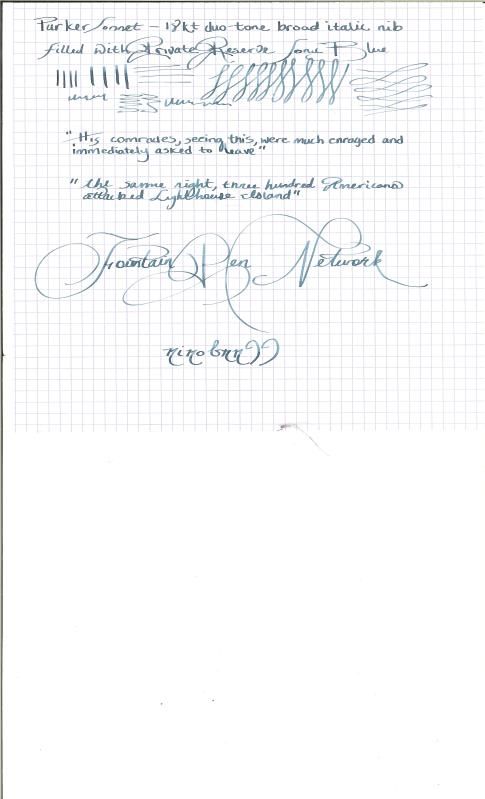 Parker Sonnet - 18kt duo-tone broad italic nib
filled with Private Reserve Sonic Blue
"His comrades, seeing this, were much enraged and
immediately asked to leave"
"the same night, three hundred Americans
attacked Lighthouse Island"
Fountain Pen Network